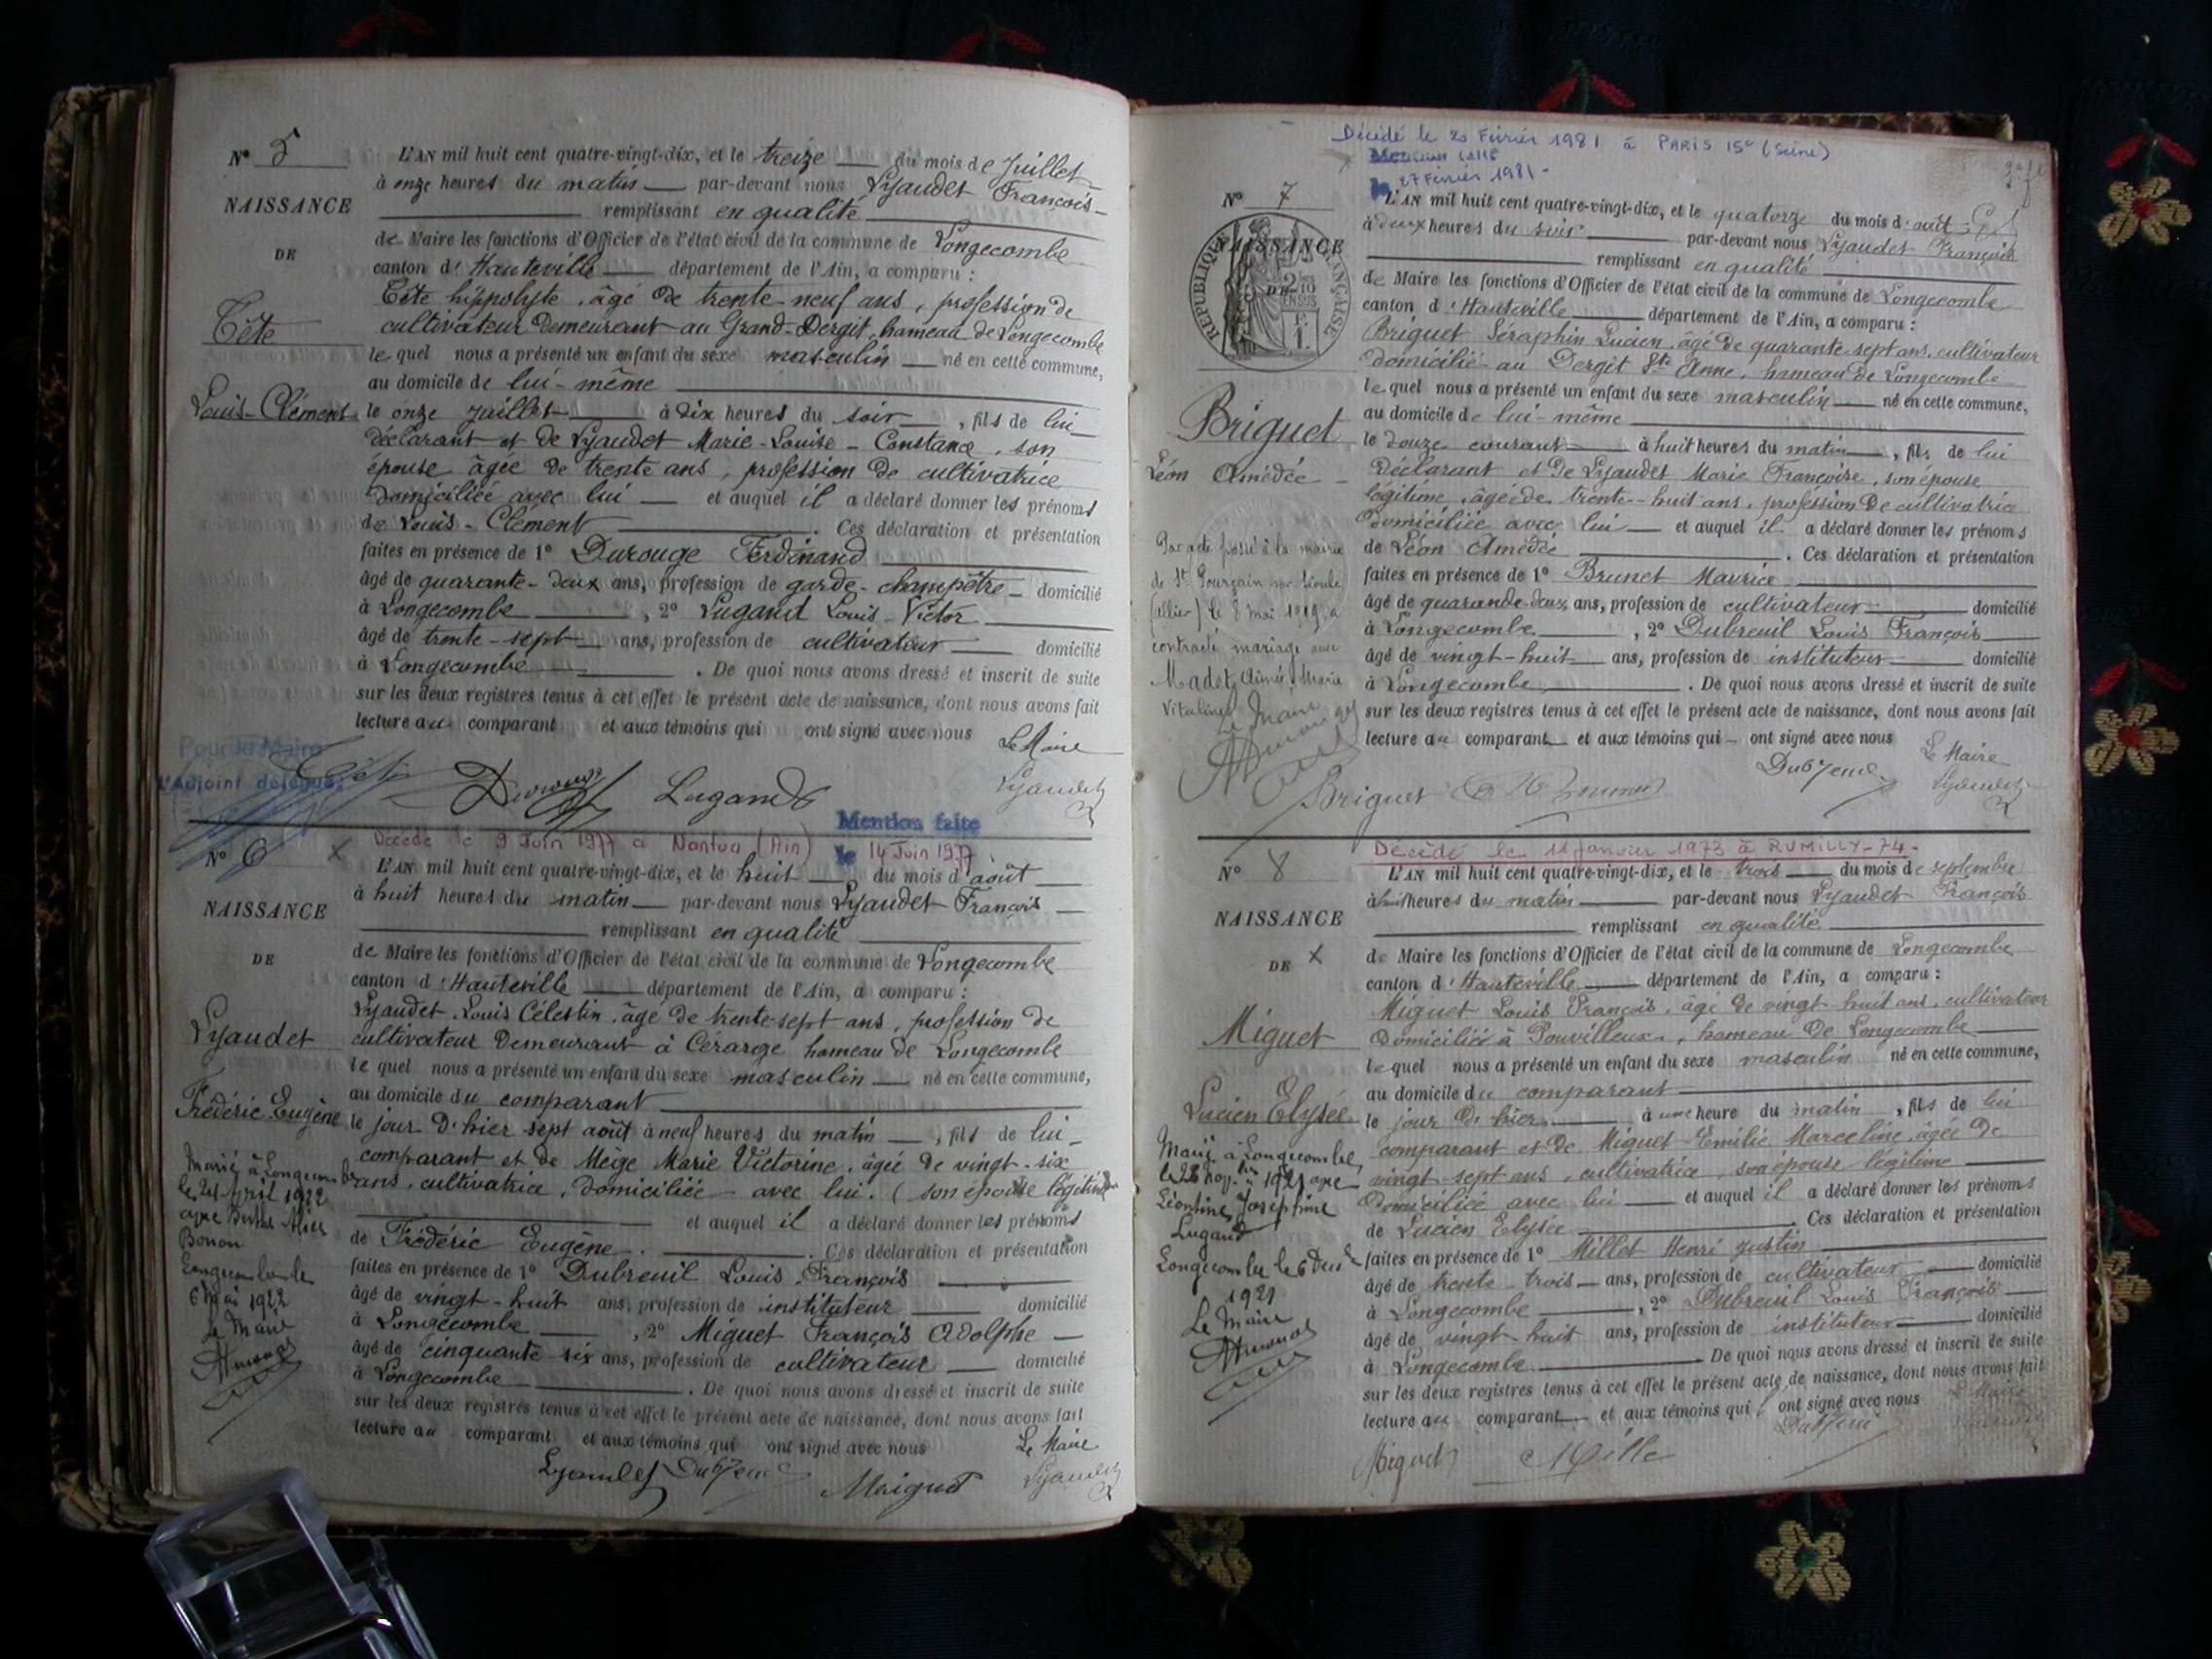 N° 5
L'AN mil huit cent quatre-vingt-dix, et le treize du mois de Juillet
à onze heures du matin par-devant nous Lyaudet François
NAISSANCE
remplissant en qualité
DE
de Maire les fonctions d'Officier de l'état civil de la commune de Longecombe
canton d'Hauteville département de l'Ain, a comparu :
Tête hippolyte, âgé de trente-neuf ans, profession de
Tête
cultivateur demeurant au Grand-Dergit, hameau de Longecombe
lequel nous a présenté un enfant du sexe masculin né en cette commune,
au domicile de lui-même
Louis-Clément
le onze juillet à dix heures du soir, fils de lui
déclarant et de Lyaudet Marie-Louise-Constance, son
épouse âgée de trente ans, profession de cultivatrice
domiciliée avec lui et auquel il a déclaré donner les prénoms
de Louis-Clément. Ces déclaration et présentation
faites en présence de 1° Durouge Ferdinand
âgé de quarante-deux ans, profession de garde-champêtre domicilié
à Longecombe, 2° Lugand Louis-Victor
âgé de trente-sept ans, profession de cultivateur domicilié
à Longecombe. De quoi nous avons dressé et inscrit de suite
sur les deux registres tenus à cet effet le présent acte de naissance, dont nous avons fait
lecture au comparant et aux témoins qui ont signé avec nous
Le Maire
Pour le Maire
L'Adjoint délégué,
Tête Durouge Lugand Lyaudet
Mention faite
le 14 Juin 1977
Décédé le 9 Juin 1977 à Nantua (Ain)
N° 6
L'AN mil huit cent quatre-vingt-dix, et le huit du mois d'août
à huit heures du matin par-devant nous Lyaudet François
NAISSANCE
remplissant en qualité
DE
de Maire les fonctions d'Officier de l'état civil de la commune de Longecombe
canton d'Hauteville département de l'Ain, a comparu :
Lyaudet Louis Célestin, âgé de trente-sept ans, profession de
Lyaudet
cultivateur demeurant à Cerarge hameau de Longecombe
lequel nous a présenté un enfant du sexe masculin né en cette commune,
au domicile du comparant
Frédéric Eugène
le jour d'hier sept août à neuf heures du matin, fils de lui
comparant et de Meige Marie Victorine, âgée de vingt-six
ans, cultivatrice, domiciliée avec lui. (son épouse légitime
et auquel il a déclaré donner les prénoms
de Frédéric Eugène. Ces déclaration et présentation
faites en présence de 1° Dubreuil Louis François
âgé de vingt-huit ans, profession de instituteur domicilié
à Longecombe, 2° Miguet François Adolphe
âgé de cinquante-six ans, profession de cultivateur domicilié
à Longecombe. De quoi nous avons dressé et inscrit de suite
sur les deux registres tenus à cet effet le présent acte de naissance, dont nous avons fait
lecture au comparant et aux témoins qui ont signé avec nous
Marié à Longecombe
le 24 Avril 1922
avec Berthe Alice
Bonon
Longecombe le
6 Mai 1922
Le Maire
Le Maire
Lyaudet Dubreuil Miguet Lyaudet
Décédé le 20 Février 1981 à PARIS 15e (Seine)
Mention faite
le 27 Février 1981
N° 7
L'AN mil huit cent quatre-vingt-dix, et le quatorze du mois d'août
à deux heures du soir par-devant nous Lyaudet François
NAISSANCE
RÉPUBLIQUE FRANÇAISE
DE
remplissant en qualité
de Maire les fonctions d'Officier de l'état civil de la commune de Longecombe
canton d'Hauteville département de l'Ain, a comparu :
Briguet Séraphin Lucien, âgé de quarante sept ans, cultivateur
domicilié au Dergit Ste Anne, hameau de Longecombe
lequel nous a présenté un enfant du sexe masculin né en cette commune,
au domicile de lui-même
Briguet
le douze courant à huit heures du matin, fils de lui
Léon Amédée
déclarant et de Lyaudet Marie Françoise, son épouse
légitime, âgée de trente-huit ans, profession de cultivatrice
domiciliée avec lui et auquel il a déclaré donner les prénoms
de Léon Amédée. Ces déclaration et présentation
faites en présence de 1° Brunet Maurice
âgé de quarante-deux ans, profession de cultivateur domicilié
à Longecombe, 2° Dubreuil Louis François
âgé de vingt-huit ans, profession de instituteur domicilié
à Longecombe. De quoi nous avons dressé et inscrit de suite
sur les deux registres tenus à cet effet le présent acte de naissance, dont nous avons fait
lecture au comparant et aux témoins qui ont signé avec nous
Par acte passé à la mairie
de St Pourçain sur Sioule
(Allier) le 8 mai 1919, a
contracté mariage avec
Madet, Aimée, Marie
Vitaline
Le Maire
Le Maire
Briguet Brunet Dubreuil Lyaudet
Décédé le 11 janvier 1973 à RUMILLY-74-
N° 8
L'AN mil huit cent quatre-vingt-dix, et le trois du mois de septembre
à huit heures du matin par-devant nous Lyaudet François
NAISSANCE
remplissant en qualité
DE
de Maire les fonctions d'Officier de l'état civil de la commune de Longecombe
canton d'Hauteville département de l'Ain, a comparu :
Miguet Louis François, âgé de vingt-huit ans, cultivateur
Miguet
domicilié à Pouvilleux, hameau de Longecombe
lequel nous a présenté un enfant du sexe masculin né en cette commune,
au domicile du comparant
Lucien Elysée
le jour d'hier à une heure du matin, fils de lui
comparant et de Miguet Emilie Marceline, âgée de
vingt-sept ans, cultivatrice, son épouse légitime
domiciliée avec lui et auquel il a déclaré donner les prénoms
de Lucien Elysée. Ces déclaration et présentation
faites en présence de 1° Millet Henri Justin
âgé de trente-trois ans, profession de cultivateur domicilié
à Longecombe, 2° Dubreuil Louis François
âgé de vingt-huit ans, profession de instituteur domicilié
à Longecombe. De quoi nous avons dressé et inscrit de suite
sur les deux registres tenus à cet effet le présent acte de naissance, dont nous avons fait
lecture au comparant et aux témoins qui ont signé avec nous
Marié à Longecombe,
le 28 nov.bre 1921 avec
Léontine, Joséphine
Lugand
Longecombe le 6 Dec
1921
Le Maire
Le Maire
Miguet Millet Dubreuil